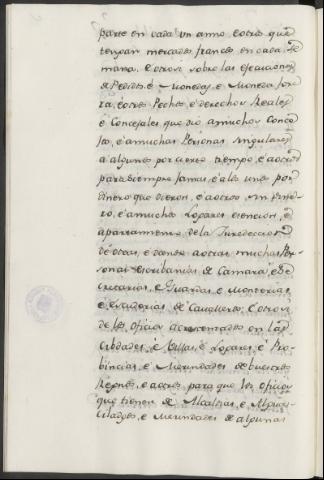 parte en cada un anno, e otros que
tengan mercados francos en cada Se-
mana, e otrosi sobre las esecuciones
de Pedidos, e Monedas, e Moneda fore-
ra, e otros Pechos, e derechos Reales,
e Concejales que dió a muchos Conce-
jos, e a muchas Personas singulares
a algunos por cierto tiempo, e a otros
para siempre Jamas, e a los unos por
dinero que dieron, e a otros sin dine-
ro, e a muchos Logares esencion, e
apartamiento de la Juredeccion
de otras, e dando a otras muchas Per-
sonas Escribanias de Camara, e Se-
cretarias, e Guardas, e Montorias,
e de Caualleros, e otrosi
de los Oficios acrecentados en las
Cibdades, e Villas, e Logares, e Pro-
bincias, e Merindades de buestros
Regnos, e a otros para que los oficios
que tienen de Alcaldias, e Alguaci-
ladgos, e Merindades de algunas